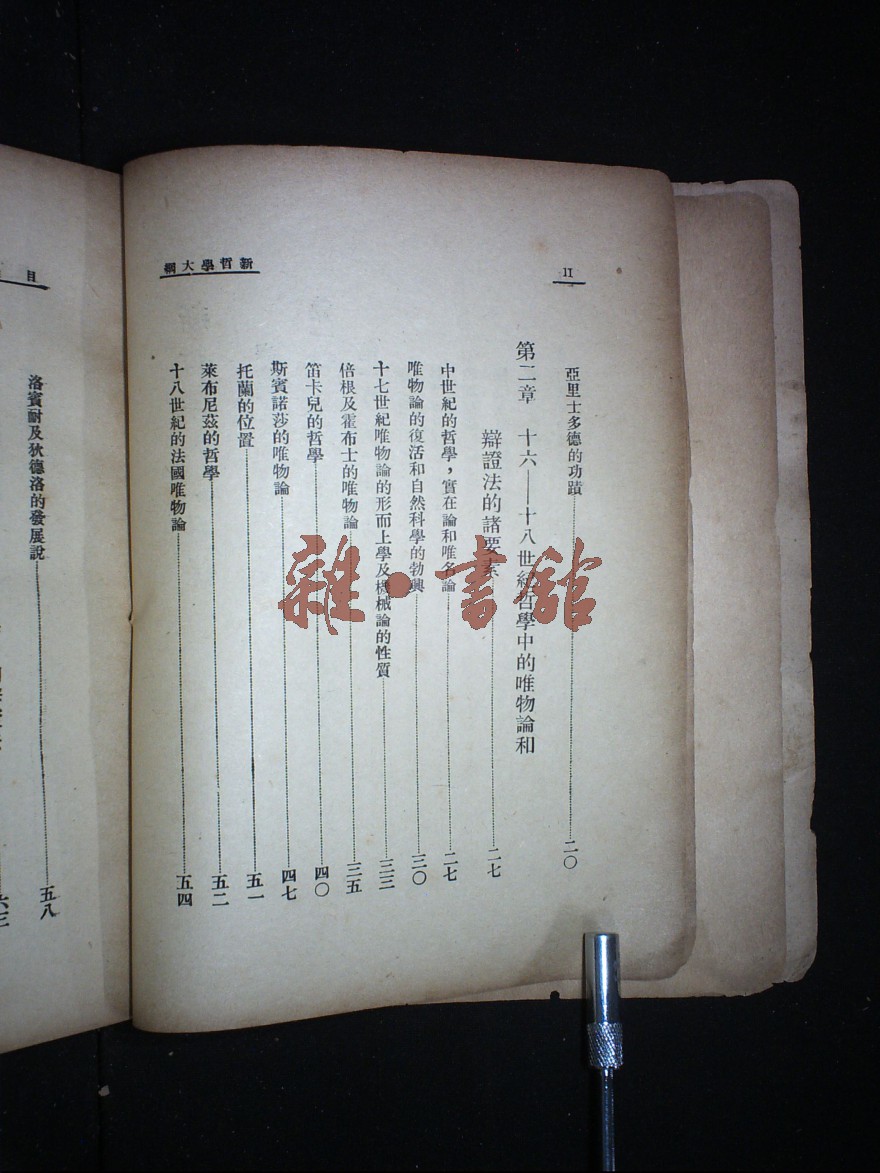 新哲學大綱
II
亞里士多德的功蹟……二〇
第二章 十六——十八世紀哲學中的唯物論和
辯證法的諸要素……二七
中世紀的哲學，實在論和唯名論……二七
唯物論的復活和自然科學的勃興……三〇
十七世紀唯物論的形而上學及機械論的性質……三三
倍根及霍布士的唯物論……三五
笛卡兒的哲學……四〇
斯賓諾莎的唯物論……四七
托蘭的位置……五一
萊布尼茲的哲學……五二
十八世紀的法國唯物論……五四
目
洛賓耐及狄德洛的發展說……五八
六三
雜·書館